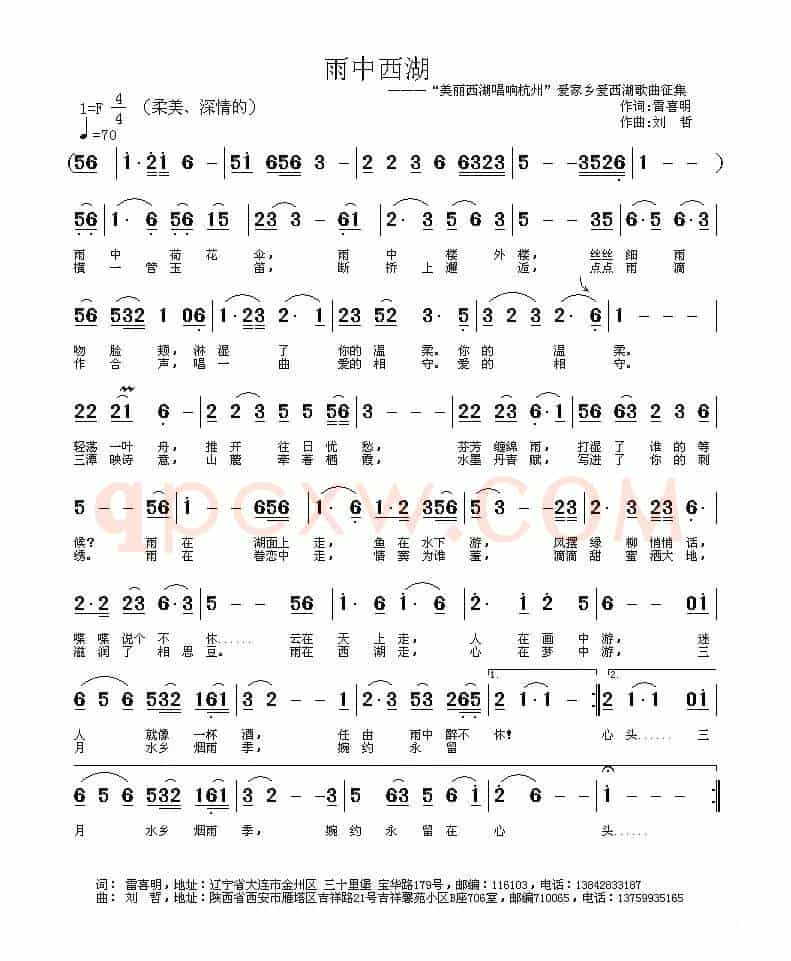 雨中西湖
———“美丽西湖唱响杭州”爱家乡爱西湖歌曲征集
1=F 4/4 （柔美、深情的）
作词:雷喜明
♩=70
作曲:刘 哲
(56 | 1·21 6 - | 51 656 3 - | 2 2 3 6 6323 | 5 - -3526 | 1 - - )
56 | 1· 6 56 15 | 23 3 - 61 | 2· 3 2 3· | 5 - - 35 | 66· 6 6·3 |
雨中 荷花伞， 雨中 楼外楼， 丝丝细雨
横一管玉笛， 断桥上邂逅， 点点雨滴
56 532 1 06 | 1·23 2· 1 | 23 52 3· 5 | 3 2 3 2· 6 | 1 - - - |
吻脸颊，淋湿了 你的温柔。你的 温柔。
作合声，唱一曲 爱的相守。爱的 相守。
22 21 6 - | 2 2 3 5 56 | 3 - - - | 22 23 6· 1 | 56 63 2 3 |
轻荡一叶舟， 推开往日忧愁， 芬芳缠绵雨，打湿了谁的等
三潭映诗意， 山麓牵着栖霞， 水墨丹青赋，写进了你的刺
5 - - 56 | 1 - - 656 | 1· 6 1·2 356 | 5 3 - -23 | 5· 3 23 6· |
候？ 雨在 湖面上走，鱼在水下游， 风摆绿柳悄悄话，
绣。 雨在 眷恋中走，情窦为谁羞， 滴滴甜蜜洒大地，
qpcxw.COM
2·2 23 6·3 | 5 - - 56 | 1· 6 1· 6 | 2 - - 1 2 | 3· 5 6 - | 6 - - 01 |
喋喋说个不休…… 云在天上走， 人在画中游， 迷
滋润了相思豆。 雨在西湖走， 心在梦中游， 三
1.
2.
6 5 6 532 161 | 3 - - 2 | 2· 3 53 265 | 2 1·1 - :| 2 1·1 01 |
人 就像一杯酒， 任由雨中醉不休！ 心头…… 三
月 水乡烟雨季， 婉约永留
6 5 6 532 161 | 3 - - 3 5 | 5 63 5 6 1 | 2 - - 6 | 1 - - - | 1 - - - :|
月 水乡烟雨季， 婉约永留在心 头……
词: 雷喜明,地址:辽宁省大连市金州区 三十里堡 宝华路179号,邮编:116103,电话:13842833187
曲: 刘 哲,地址:陕西省西安市雁塔区吉祥路21号吉祥馨苑小区B座706室,邮编710065,电话:13759935165